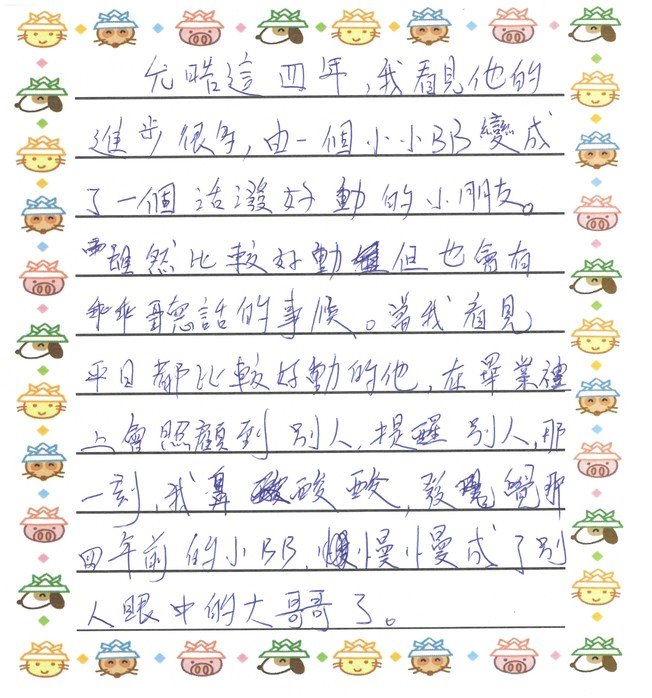 尤晧這四年,我看見他的
進步很多,由一個小小BB變成
了一個活潑好動的小朋友。
雖然比較好動但也會有
乖乖聽話的事候。當我看見
平日都比較好動的他,在畢業禮
上會照顧到別人,提醒別人,那
一刻,我鼻酸酸,發覺那
四年前的小BB,慢慢成了別
人眼中的大哥哥了。